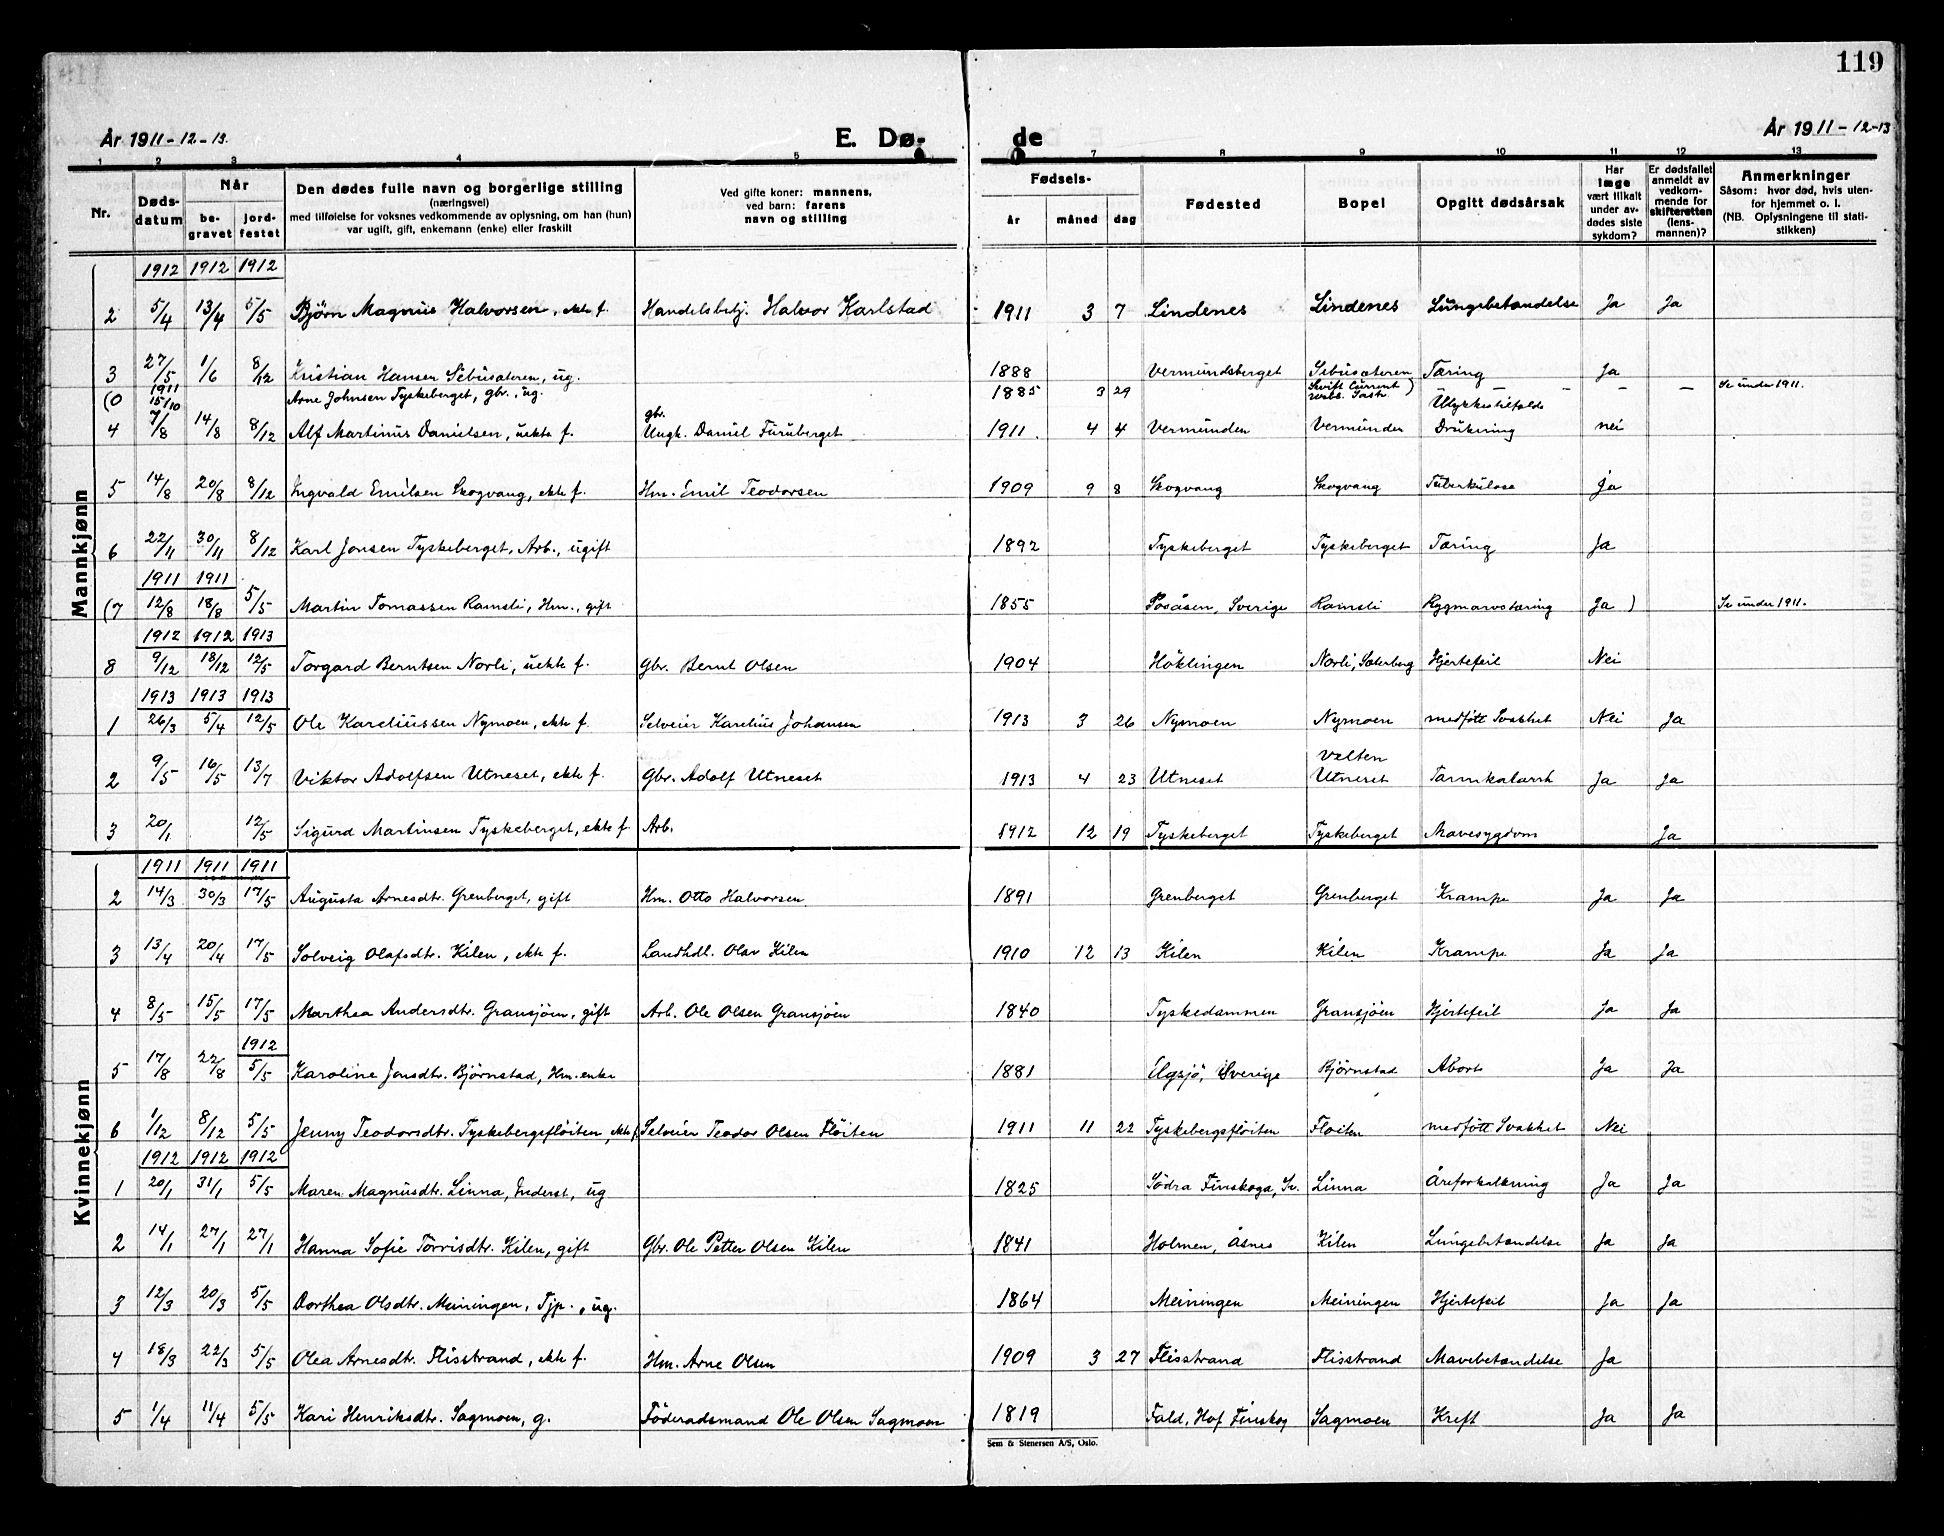 119
År 1911-12-13.
E. Dø-
de
År 1911-12-13
1 2 3 4 5 7 8 9 10 11 12 13
Nr.
Døds-datum
Når
be-gravet
jord-festet
Den dødes fulle navn og borgerlige stilling
(næringsvei)
med tilføielse for voksnes vedkommende av oplysning, om han (hun)
var ugift, gift, enkemann (enke) eller fraskilt
Ved gifte koner: mannens,
ved barn: farens
navn og stilling
Fødsels-
år måned dag
Fødested
Bopel
Opgitt dødsårsak
Har læge vært tilkalt under av-dødes siste sykdom?
Er dødsfallet anmeldt av vedkom-mende for skifteretten (lens-mannen)?
Anmerkninger
Såsom: hvor død, hvis uten-
for hjemmet o. l.
(NB. Oplysningene til stati-
stikken)
Mannkjønn
1912 1912 1912
2 5/4 13/4 5/5 Bjørn Magnus Halvorsen, ekte f. Handelsbetj. Halvor Karlstad 1911 3 7 Lindenes Lindenes Lungebetændelse Ja Ja
3 27/5 1/6 8/12 Kristian Hansen Sebusæteren, ug. 1888 Vermundsberget Sebusæteren Tæring Ja
(0 1911 15/10 Arne Johnsen Tyskeberget, gbr., ug. 1885 3 29 Swift Current Ulykkestilfelde - - Se under 1911.
4 7/8 14/8 8/12 Alf Martinus Danielsen, uekte f. gbr. Ungk. Daniel Furuberget 1911. 4 4 Vermunden Vermunden Drukning nei
5 14/8 20/8 8/12 Ingvald Emilsen Skogvang, ekte f. Hm. Emil Teodorsen 1909 9 8 Skogvang Skogvang Tuberkulose ja
6 22/11 30/11 8/12 Karl Jonsen Tyskeberget, Arb., ugift 1892 Tyskeberget Tyskeberget Tæring Ja
1911 1911
(7 12/8 18/8 5/5 Martin Tomassen Ramsli, Hm., gift 1855 Posåsen, Sverige Ramsli Rygmarvstæring Ja ) Se under 1911.
1912 1912 1913
8 9/12 18/12 12/5 Torgard Berntsen Norli, uekte f. Gbr. Bernt Olsen 1904 Höklingen Norli, Sæterberg Hjertefeil Nei
1913 1913 1913
1 26/3 5/4 12/5 Ole Kareliussen Nymoen, ekte f. Selveier Karelius Johansen 1913 3 26 Nymoen Nymoen medfött Svakhet Nei Ja
2 9/5 16/5 13/7 Viktor Adolfsen Utneset, ekte f. Gbr. Adolf Utneset 1913 4 23 Utneset Velten Utneset Tarmkatarrh Ja Ja
3 20/1 12/5 Sigurd Martinsen Tyskeberget, ekte f. Arb. 1912 12 19 Tyskeberget Tyskeberget Mavesygdom Ja
Kvinnekjønn
1911 1911 1911
2 14/3 30/3 17/5 Augusta Arnesdtr. Grenberget, gift Hm. Otto Halvorsen 1891 Grenberget Grenberget Krampe Ja Ja
3 13/4 20/4 17/5 Solveig Olafsdtr. Kilen, ekte f. Landhdl. Olav Kilen 1910 12 13 Kilen Kilen Krampe Ja Ja
4 8/5 15/5 17/5 Marthea Andersdtr. Gransjöen, gift Arb. Ole Olsen Gransjöen 1840 Tyskedammen Gransjöen Hjertefeil Ja Ja
1912
5 17/8 22/8 5/5 Karoline Jonsdtr. Björnstad, Hm.enke 1881 Elgsjö, Sverige Björnstad Abort Ja Ja
6 1/12 8/12 5/5 Jenny Teodorsdtr. Tyskebergsflöiten, ekte f. Selveier Teodor Olsen Flöiten 1911 11 22 Tyskebergsflöiten Flöiten medfött Svakhet Nei
1912 1912 1912
1 20/1 31/1 5/5 Maren Magnusdtr. Linna, Inderst, ug 1825 Södra Finskoga, Sv. Linna Åreforkalkning Ja Ja
2 14/1 27/1 27/1 Hanna Sofie Torrisdtr. Kilen, gift Gbr. Ole Petter Olsen Kilen 1841 Holmen, Åsnes Kilen Lungebetændelse Ja Ja
3 12/3 20/3 5/5 Dorthea Olsdtr. Meiningen, Tjp., ug. 1864 Meiningen Meiningen Hjertefeil Ja Ja
4 18/3 22/3 5/5 Olea Arnesdtr. Flisstrand, ekte f. Hm. Arne Olsen 1909 3 27 Flisstrand Flisstrand Mavebetændelse Ja
5 1/4 11/4 5/5 Kari Henriksdtr. Sagmoen, g. Föderadsmand Ole Olsen Sagmoen 1819 Fald, Hof Finskog Sagmoen Kreft Ja Ja
Sem & Stenersen A/S, Oslo.